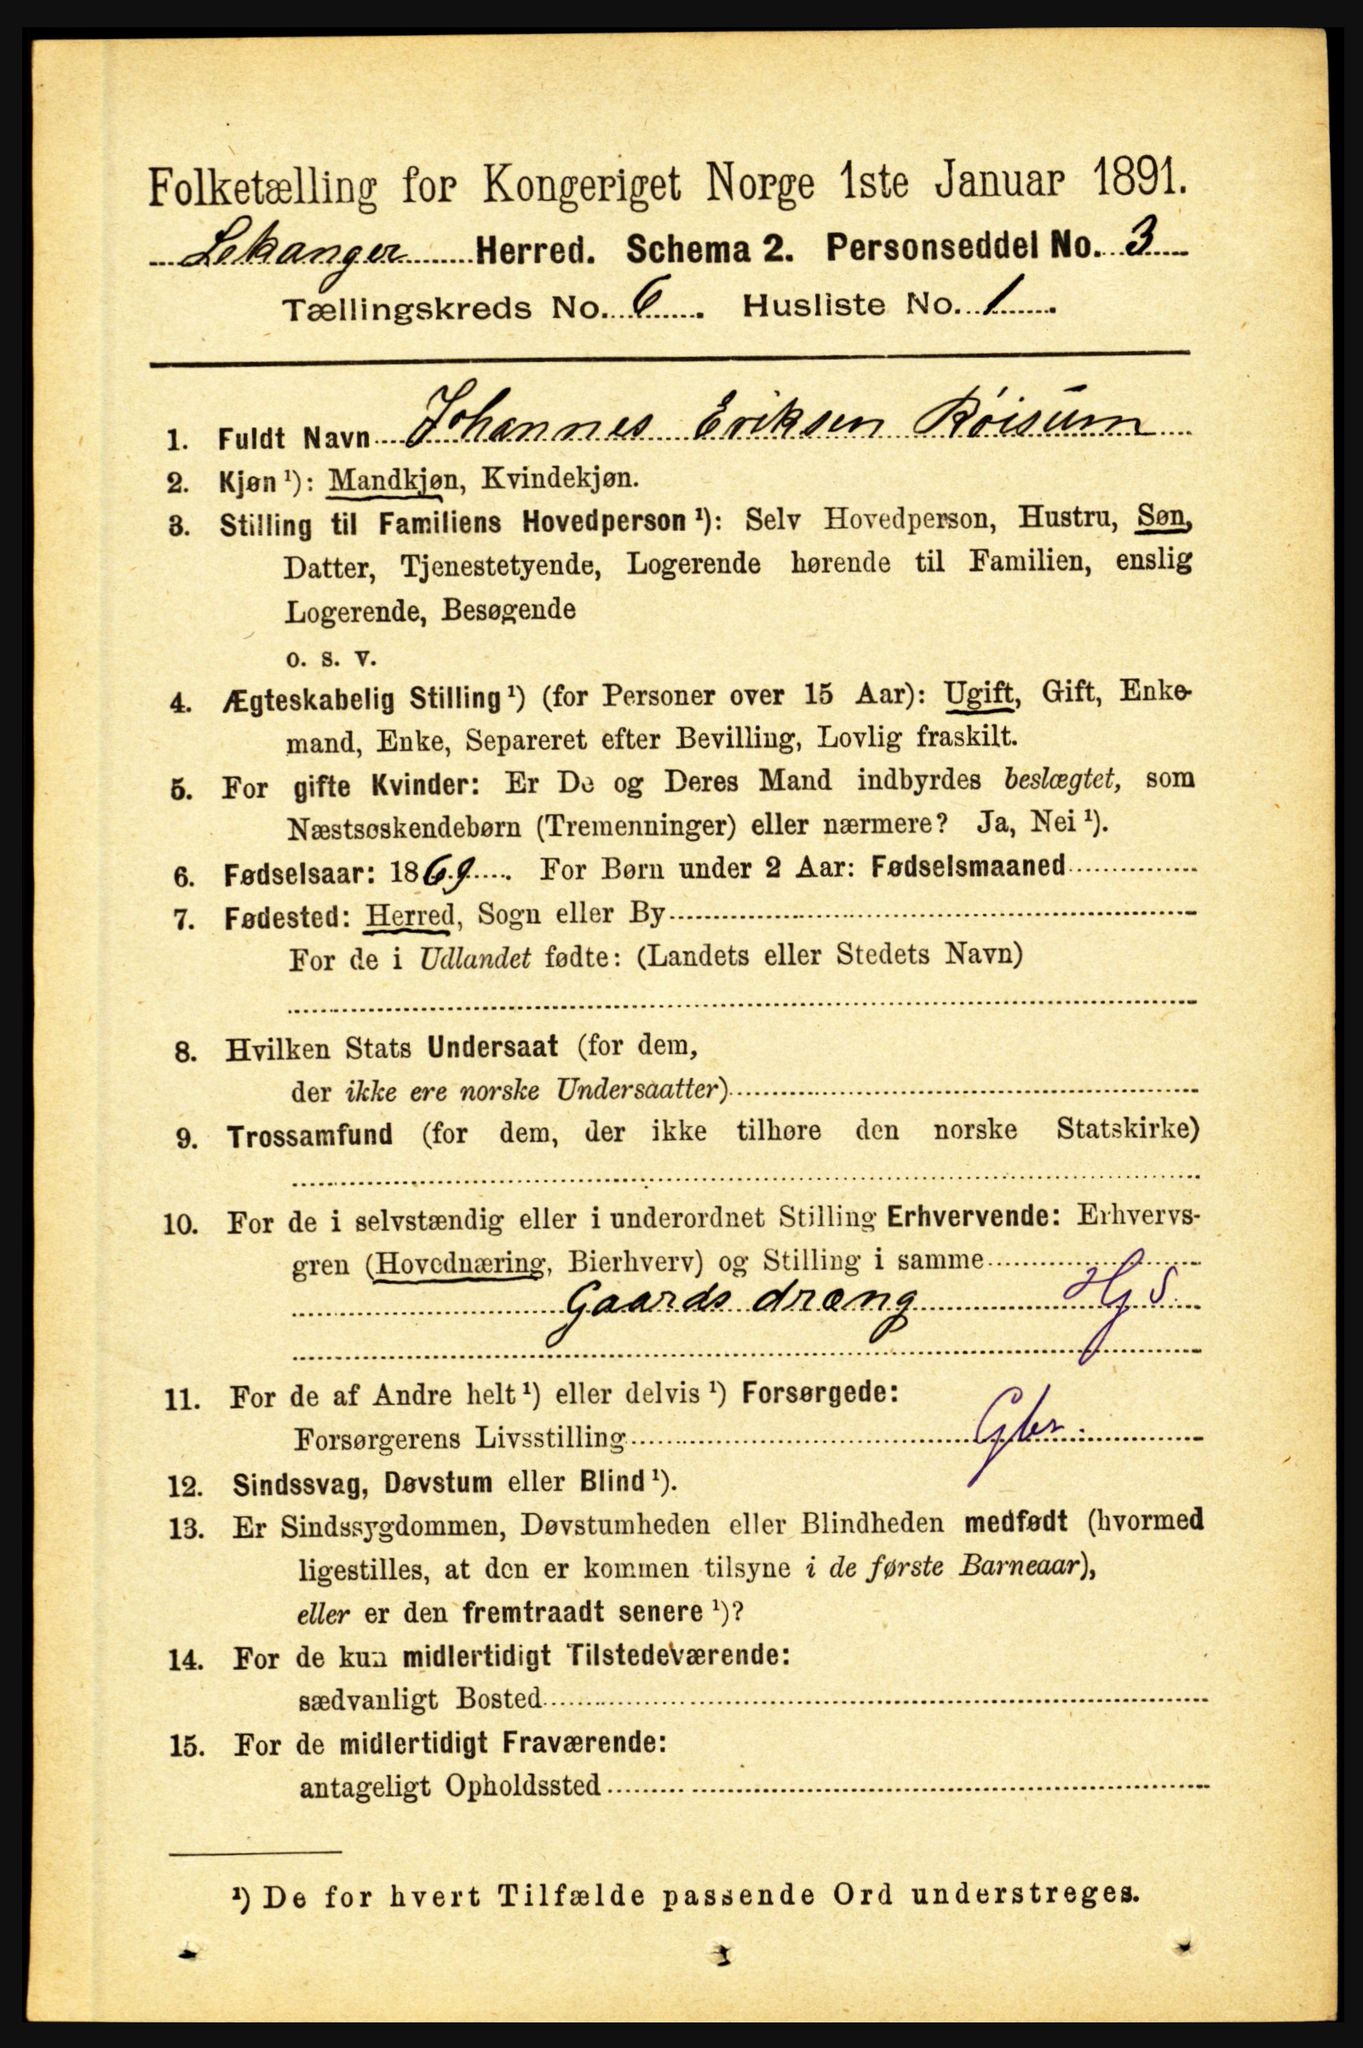 Folketælling for Kongeriget Norge 1ste Januar 1891.
Lekanger Herred. Schema 2. Personseddel No. 3
Tællingskreds No. 6. Husliste No. 1.
1. Fuldt Navn Johannes Eriksen Røisum
2. Kjøn ¹): Mandkjøn, Kvindekjøn.
3. Stilling til Familiens Hovedperson ¹): Selv Hovedperson, Hustru, Søn,
Datter, Tjenestetyende, Logerende hørende til Familien, enslig
Logerende, Besøgende
o. s. v.
4. Ægteskabelig Stilling ¹) (for Personer over 15 Aar): Ugift, Gift, Enke-
mand, Enke, Separeret efter Bevilling, Lovlig fraskilt.
5. For gifte Kvinder: Er De og Deres Mand indbyrdes beslægtet, som
Næstsøskendebørn (Tremenninger) eller nærmere? Ja, Nei ¹).
6. Fødselsaar: 1869. For Børn under 2 Aar: Fødselsmaaned
7. Fødested: Herred, Sogn eller By
For de i Udlandet fødte: (Landets eller Stedets Navn)
8. Hvilken Stats Undersaat (for dem,
der ikke ere norske Undersaatter)
9. Trossamfund (for dem, der ikke tilhøre den norske Statskirke)
10. For de i selvstændig eller i underordnet Stilling Erhvervende: Erhvervs-
gren (Hovednæring, Bierhverv) og Stilling i samme
Gaards dræng HjS
11. For de af Andre helt ¹) eller delvis ¹) Forsørgede:
Forsørgerens Livsstilling Gbr.
12. Sindssvag, Døvstum eller Blind ¹).
13. Er Sindssygdommen, Døvstumheden eller Blindheden medfødt (hvormed
ligestilles, at den er kommen tilsyne i de første Barneaar),
eller er den fremtraadt senere ¹)?
14. For de kun midlertidigt Tilstedeværende:
sædvanligt Bosted
15. For de midlertidigt Fraværende:
antageligt Opholdssted
¹) De for hvert Tilfælde passende Ord understreges.